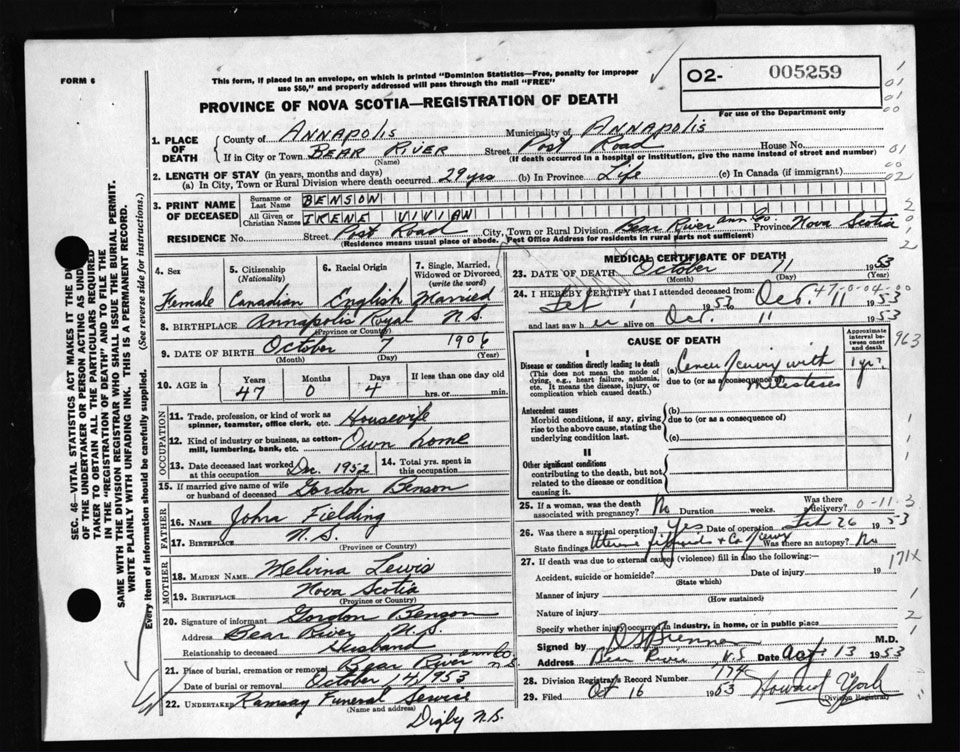 FORM 6
This form, if placed in an envelope, on which is printed "Dominion Statistics—Free, penalty for improper
use $50," and properly addressed will pass through the mail "FREE"
O2- 005259
For use of the Department only
PROVINCE OF NOVA SCOTIA—REGISTRATION OF DEATH
1. PLACE OF DEATH
County of ANNAPOLIS Municipality of ANNAPOLIS
If in City or Town BEAR RIVER Street Post Road House No.
(Name) (If death occurred in a hospital or institution, give the name instead of street and number)
2. LENGTH OF STAY (in years, months and days)
(a) In City, Town or Rural Division where death occurred 29 yrs (b) In Province Life (c) In Canada (if immigrant)
3. PRINT NAME OF DECEASED
Surname or Last Name BENSON
All Given or Christian Names IRENE VIVIAN
RESIDENCE No. Street Post Road City, Town or Rural Division Bear River Ann. Co. Province Nova Scotia
(Residence means usual place of abode. Post Office Address for residents in rural parts not sufficient)
4. Sex Female
5. Citizenship (Nationality) Canadian
6. Racial Origin English
7. Single, Married, Widowed or Divorced (write the word) Married
8. BIRTHPLACE Annapolis Royal N.S.
(Province or Country)
9. DATE OF BIRTH October 7 1906
(Month) (Day) (Year)
10. AGE in Years Months Days If less than one day old
47 0 4 hrs. or min.
OCCUPATION
11. Trade, profession, or kind of work as spinner, teamster, office clerk, etc. Housewife
12. Kind of industry or business, as cotton-mill, lumbering, bank, etc. Own home
13. Date deceased last worked at this occupation Dec. 1952
14. Total yrs. spent in this occupation
15. If married give name of wife or husband of deceased Gordon Benson
FATHER
16. NAME John Fielding
17. BIRTHPLACE N.S.
(Province or Country)
MOTHER
18. MAIDEN NAME Melvina Lewis
19. BIRTHPLACE Nova Scotia
(Province or Country)
20. Signature of informant Gordon Benson
Address Bear River N.S.
Relationship to deceased Husband
21. Place of burial, cremation or removal Bear River Ann Co. N.S.
Date of burial or removal October 14/1953
22. UNDERTAKER Ramsay Funeral Service
(Name and address)
Digby N.S.
MEDICAL CERTIFICATE OF DEATH
23. DATE OF DEATH October 11 1953
(Month) (Day) (Year)
24. I HEREBY CERTIFY that I attended deceased from
Feb 1 1953 to Oct. 11 1953
and last saw her alive on Oct. 11 1953
CAUSE OF DEATH
Approximate interval between onset and death
I
Disease or condition directly leading to death
(This does not mean the mode of dying, e.g., heart failure, asthenia, etc. It means the disease, injury, or complication which caused death.)
(a) Cancer Cervix with
due to (or as a consequence of) Metastases
1 yr.
Antecedent causes
Morbid conditions, if any, giving rise to the above cause, stating the underlying condition last.
(b)
due to (or as a consequence of)
(c)
II
Other significant conditions
contributing to the death, but not related to the disease or condition causing it.
25. If a woman, was the death associated with pregnancy? No Duration weeks. Was there delivery?
26. Was there a surgical operation? Yes Date of operation Feb 26 1953
State findings Was there an autopsy? No
27. If death was due to external causes (violence) fill in also the following:—
Accident, suicide or homicide? Date of injury 19
(State which)
Manner of injury
(How sustained)
Nature of injury
Specify whether injury occurred in industry, in home, or in public place
Signed by M.D.
Address Bear River N.S Date Oct 13 1953
28. Division Registrar's Record Number 174
29. Filed Oct 16 1953 Howard York
(Division Registrar)
963
0-11-3
171X
SEC. 46—VITAL STATISTICS ACT MAKES IT THE DU
OF THE UNDERTAKER OR PERSON ACTING AS UNDER
TAKER TO OBTAIN ALL THE PARTICULARS REQUIRED
IN THE "REGISTRATION OF DEATH" AND TO FILE THE
SAME WITH THE DIVISION REGISTRAR WHO SHALL ISSUE THE BURIAL PERMIT.
WRITE PLAINLY WITH UNFADING INK. THIS IS A PERMANENT RECORD.
Every item of information should be carefully supplied. (See reverse side for instructions.)